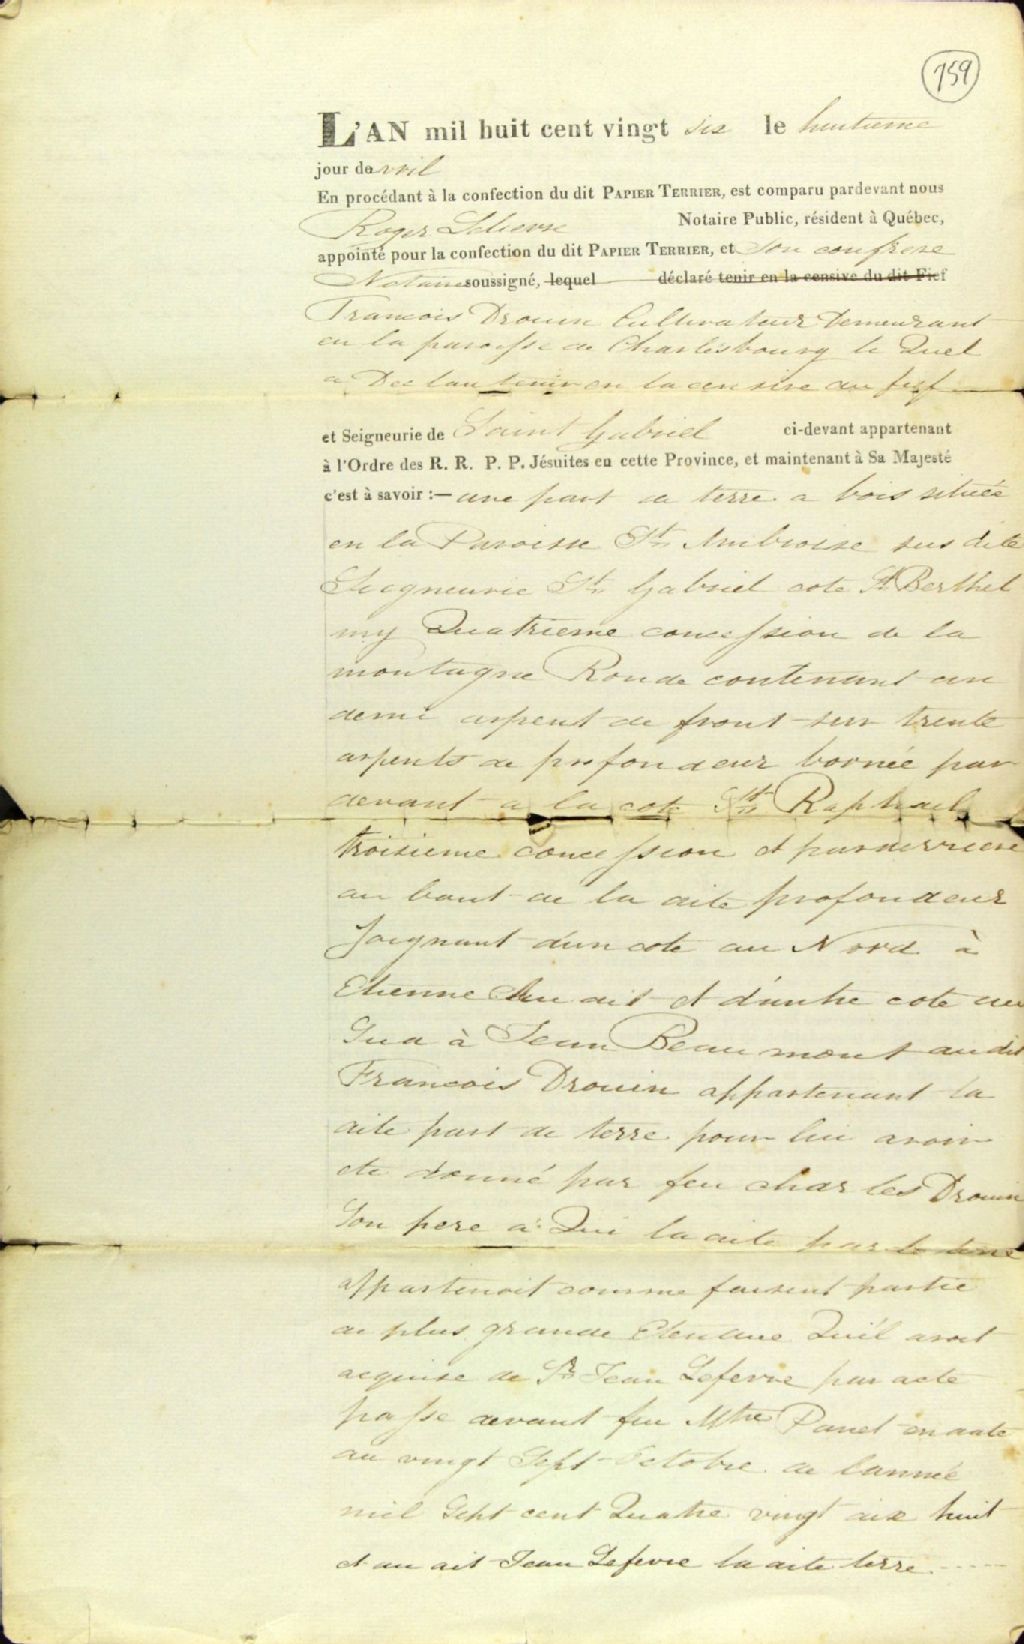 759
L'AN mil huit cent vingt six le huitieme
jour davril
En procédant à la confection du dit PAPIER TERRIER, est comparu pardevant nous
Roger Lelievre Notaire Public, résident à Québec,
appointé pour la confection du dit PAPIER TERRIER, et Son confrere
Notaire soussigné, lequel déclaré tenir en la censive du dit Fief
Francois Drouin Cultivateur Demeurant
en la paroisse de Charlesbourg le Quel
a Declau tenir en la censive du fief
et Seigneurie de Saint Gabriel ci-devant appartenant
à l'Ordre des R. R. P. P. Jésuites en cette Province, et maintenant à Sa Majesté
c'est à savoir :— une part de terre a bois située
en la Paroisse St Ambroise sus dite
Seigneurie St Gabriel cote St Berthel
my Quatrieme concession de la
montagne Ronde contenant un
demi arpent de front sur trente
arpents de profondeur bornée par
devant a la cote St Raphael
troisieme concession et parderriere
au bout de la dite profondeur
Joignant dun cote au Nord à
Etienne dit et d'autre cote au
Sud à Jean Beaumont au dit
Francois Drouin appartenant la
dite part de terre pour lui avoir
ete donné par feu charles Drouin
Son pere a Qui la dite part de terre
appartenoit comme faisent partie
de plus grande Etendue Quil avoit
acquise de Sr Jean Lefevre par acte
passe devant feu Mtre Panet en date
du vingt Sept Octobre de lannée
mil Sept cent Quatre vingt dix huit
et au dit Jean Lefevre la dite terre